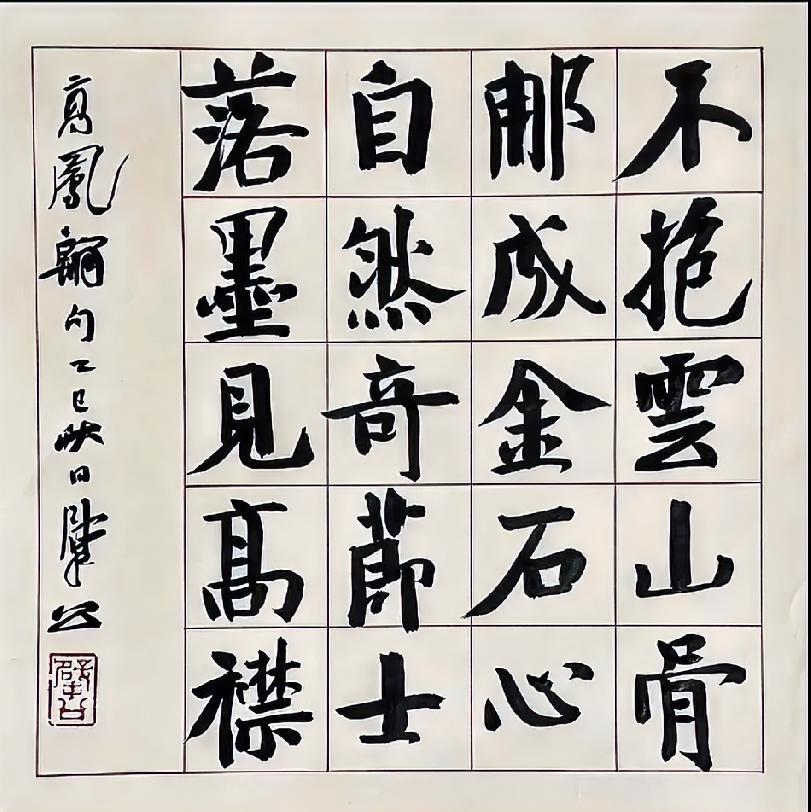 不抱雲山骨
那成金石心
自然奇節士
落墨見高襟
高鳳翰句乙巳秋日陳公